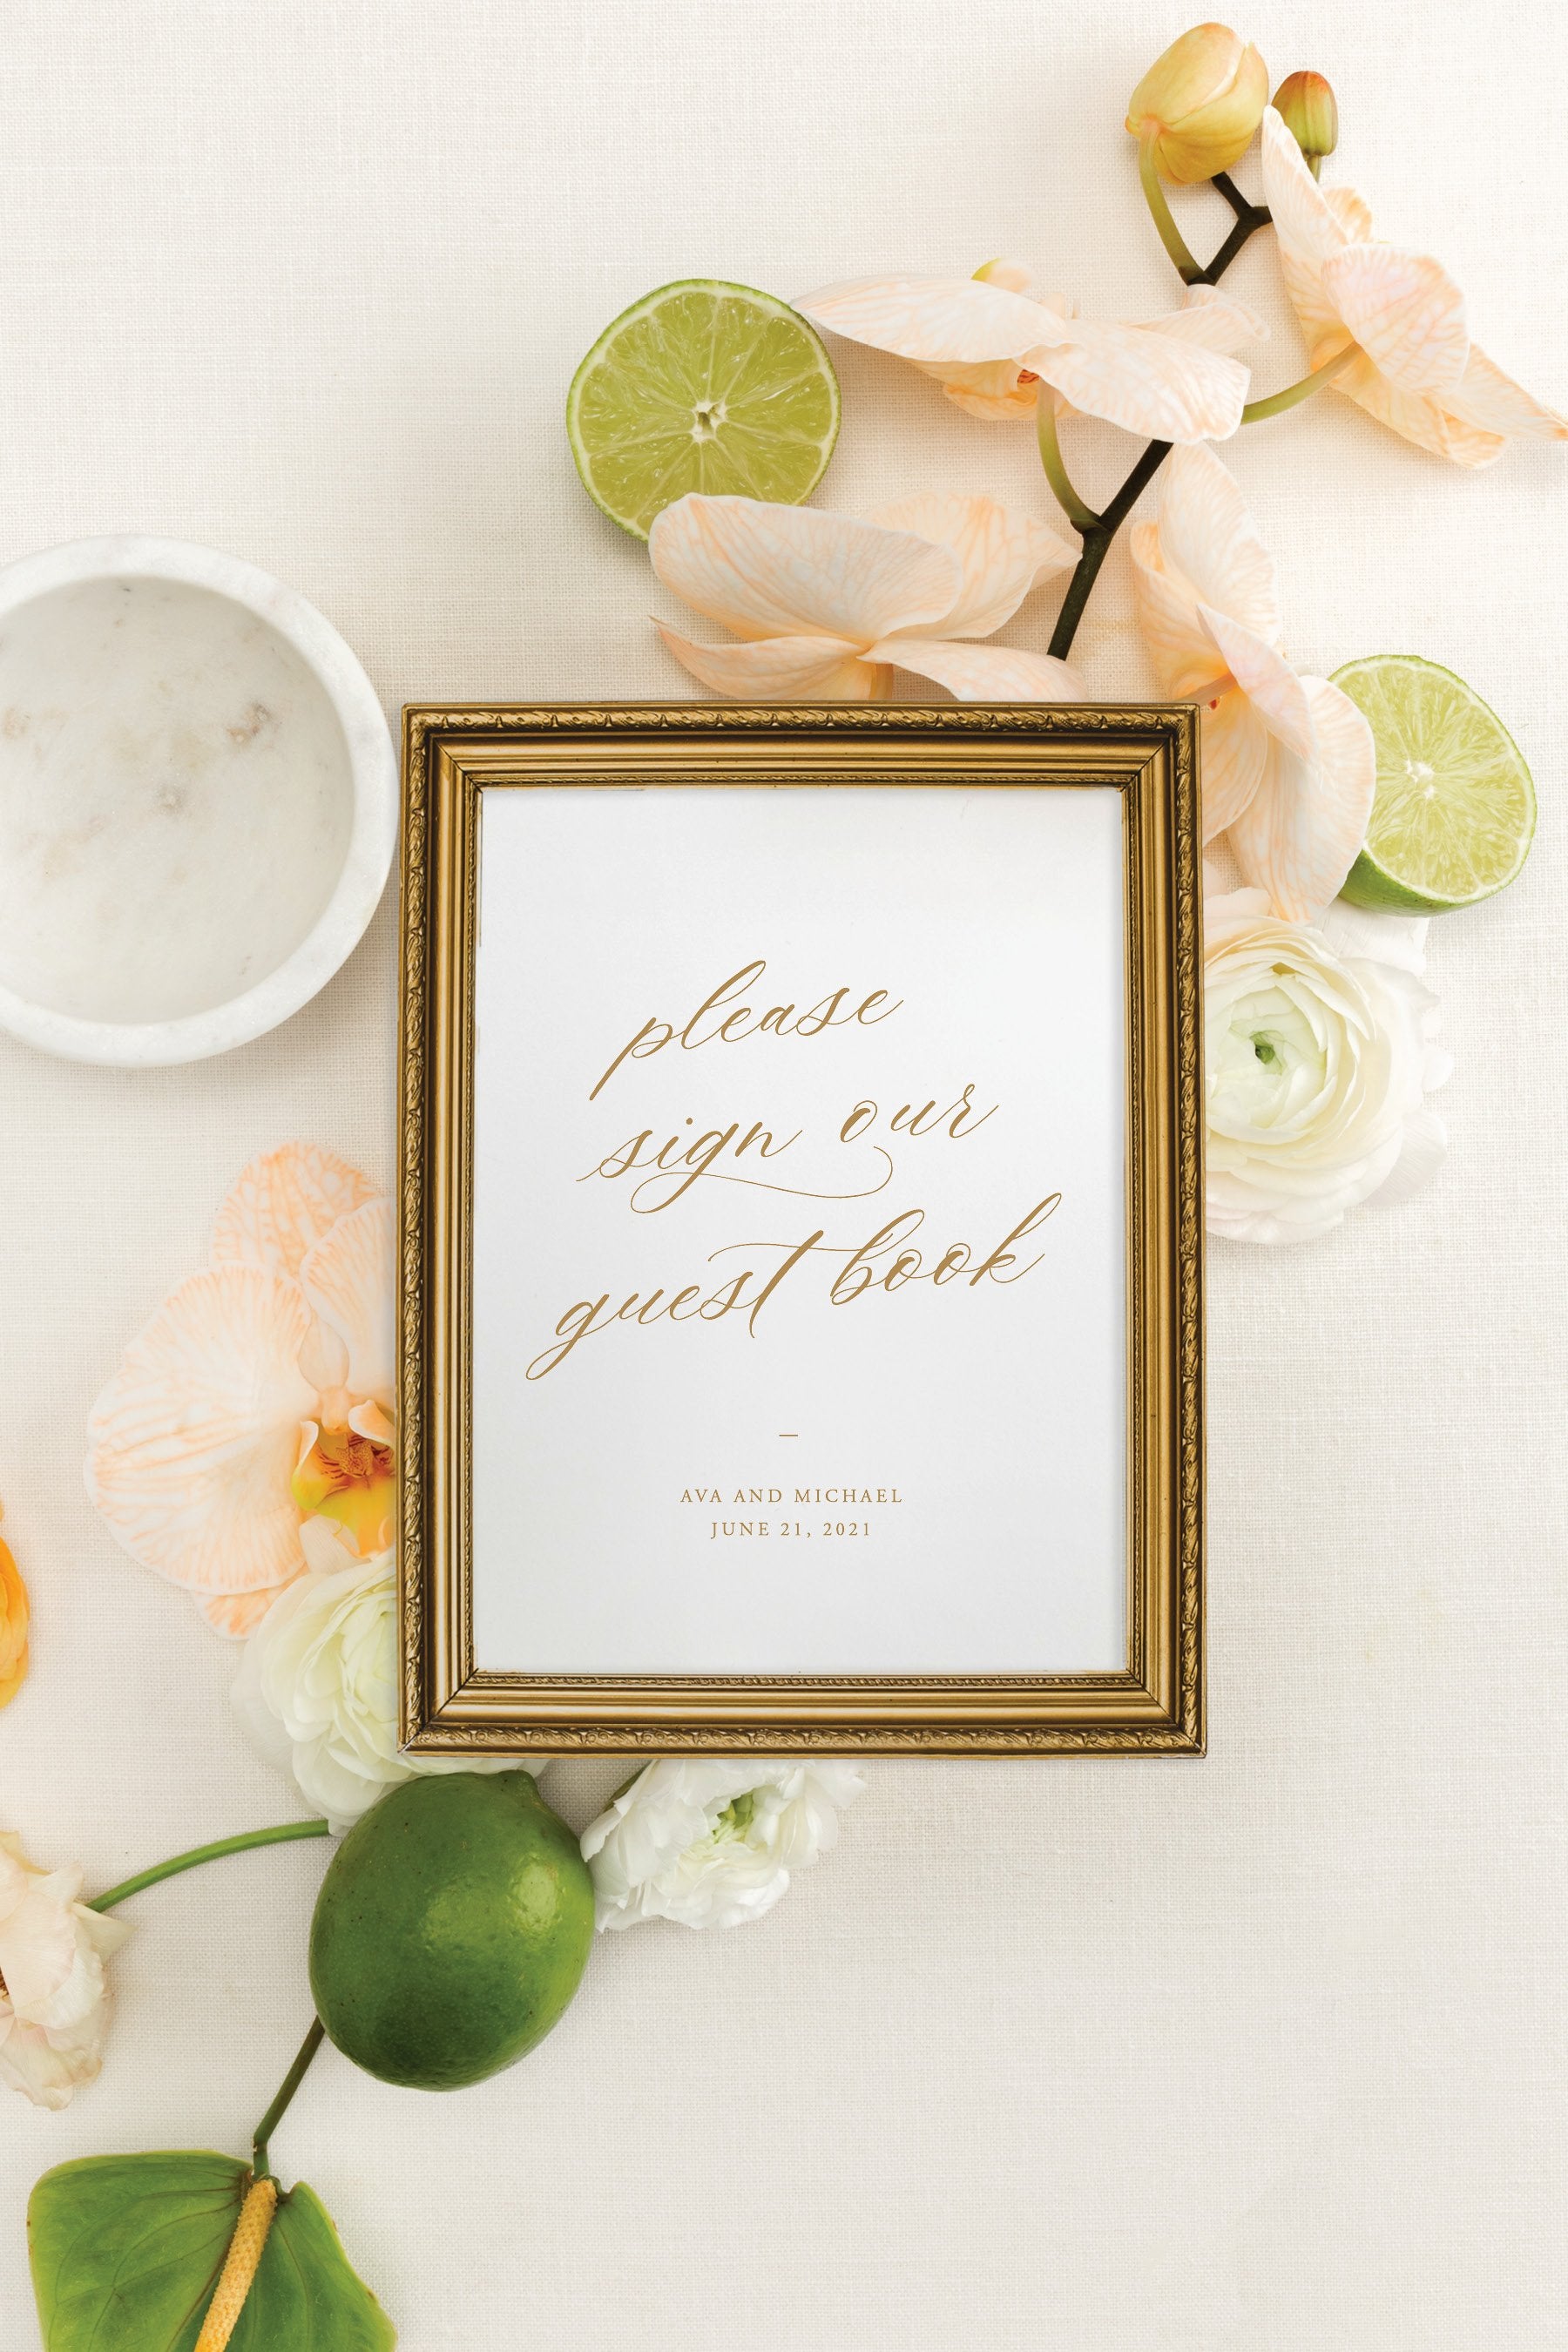 please
sign our
guest book
—
AVA AND MICHAEL
JUNE 21, 2021